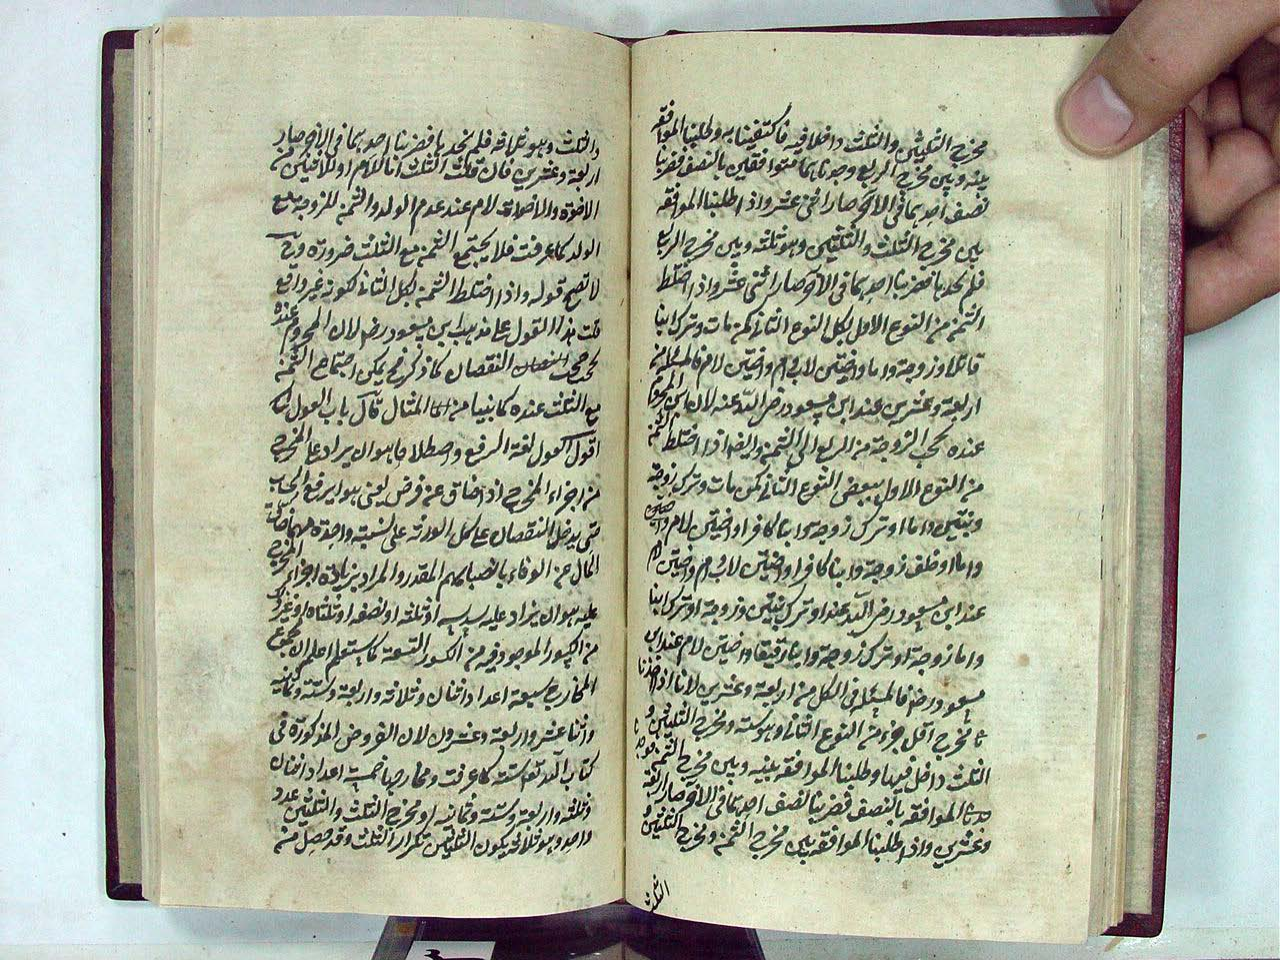 مخرج الثلثين والثلث داخلا فيه فاكتفينا به وطلبنا الموافقة
بينه وبين مخرج الربع وجدناهما متوافقين بالنصف فضربنا
نصف احدهما في الآخر صار اثنى عشر واذا طلبنا الموافقة
بين مخرج الثلث والثلثين وهو ثلثة وبين مخرج الربع
فلم نجدها فضربنا احدهما في الآخر صار اثنى عشر واذا اختلط
الثمن من النوع الاول بكل النوع الثاني كمن مات وترك ابنا
قاتلا وزوجة واما واختين لاب وام واختين لام فالمسئلة من
اربعة وعشرين عند ابن مسعود رضى الله عنه لان الابن المحروم
عنده يحجب الزوجة من الربع الى الثمن وايضا اذا اختلط الثمن
من النوع الاول ببعض النوع الثاني كمن مات وترك زوجة
وبنتين واما او ترك زوجة وابنا كافرا واختين لام واختين
واما او خلف زوجة وابنا كافرا واختين لاب وام واختين لام
عند ابن مسعود رضى الله عنه او ترك بنتين وزوجة او ترك ابنا
واما زوجة او ترك زوجة وابنا رقيقا واختين لام عند ابن
مسعود رضه فالمسئلة في الكل من اربعة وعشرين لانا اذا اخذنا
مخرج اقل جزء من النوع الثاني وهو ستة ومخرج الثلثين و
الثلث داخل فيها وطلبنا الموافقة بينه وبين مخرج الثمن فوجدنا
الموافقة بالنصف فضربنا نصف احدهما في الآخر صار اربعة
وعشرين واذا طلبنا الموافقة بين مخرج الثمن ومخرج الثلثين و
الثلث
والثلث وهو ثلاثة فلم نجدها فضربنا احدهما في الآخر صار
اربعة وعشرين فان قلت الثلث اما للام او للاثنين من
الاخوة والاخوات لام عند عدم الولد والثمن للزوجة مع
الولد كما عرفت فلا يجتمع الثمن مع الثلث ضرورة وح
لا تصح قوله واذا اختلط الثمن بكل الثاني لكونه غير واقع
قلت هذا القول على مذهب ابن مسعود رضه لان المحروم عنده
يحجب حجب النقصان كما ذكر فح يمكن اجتماع الثمن
مع الثلث عنده كما بينا من المثال قال باب العول
اقول العول لغة الرفع واصطلاحا هو ان يزاد على المخرج
من اجزاء المخرج اذا ضاق عن فرض يعنى هو ان يرفع الحساب
حتى يدخل النقصان على كل الورثة على نسبة واحدة
المال عن الوفاء بانصبائهم المقدر والمراد بزيادة اجزاء المخرج
عليه هو ان يزاد عليه سدسه او ثلثه او نصفه او ثلثاه او غير ذلك
من الكسور الموجود فيه من الكسور التسعة كما ستعلم اعلم ان مجموع
المخارج سبعة اعداد اثنان وثلاثة واربعة وستة وثمانية
واثنا عشر واربعة وعشرون لان الفروض المذكورة في
كتاب الله تع ستة كما عرفت ومخارجها خمسة اعداد اثنان
وثلثة واربعة وستة وثمانية او مخرج الثلث والثلثين عدد
واحد وهو ثلاثة يكون الثلثين تكرار الثلث وقد حصل من